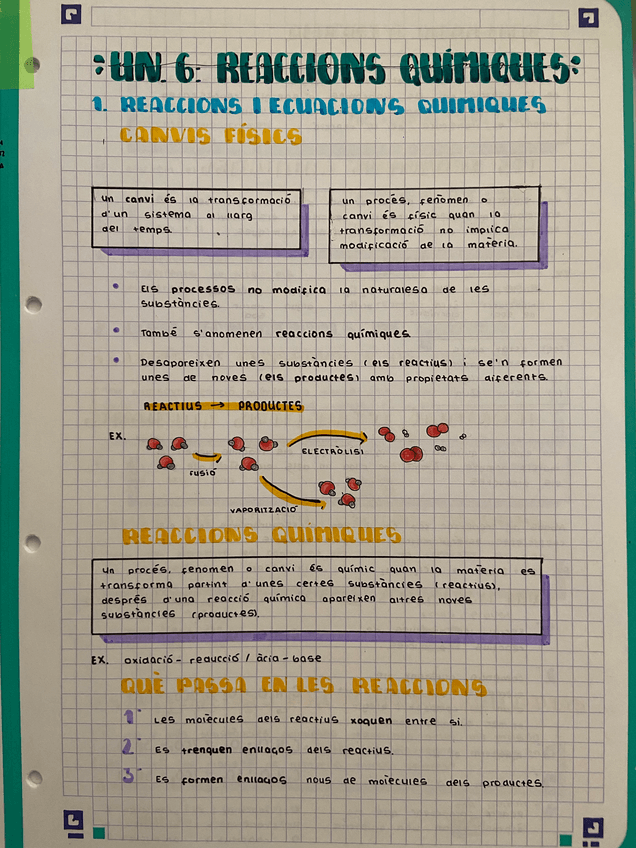 UN. 6: REACCIONS QUÍMIQUES:
1. REACCIONS I ECUACIONS QUIMIQUES
CANVIS FÍSICS
un canvi és la transformació
d'un sistema al llarg
del temps.
un procés, fenomen o
canvi és físic quan la
transformació no implica
modificació de la matèria.
• Els processos no modifica la naturalesa de les
substàncies.
• També s'anomenen reaccions químiques.
• Desapareixen unes substàncies (els reactius) i se'n formen
unes de noves (els productes) amb propietats diferents.
REACTIUS → PRODUCTES
EX.
FUSIÓ
ELECTRÒLISI
VAPORITZACIÓ
REACCIONS QUÍMIQUES
un procés, fenomen o canvi és químic quan la matèria es
transforma partint d'unes certes substàncies (reactius),
després d'una reacció química apareixen altres noves
substàncies (productes).
EX. oxidació - reducció / àcid - base
QUÈ PASSA EN LES REACCIONS
1r Les molècules dels reactius xoquen entre si.
2n Es trenquen enllaços dels reactius.
3r Es formen enllaços nous de molècules dels productes.